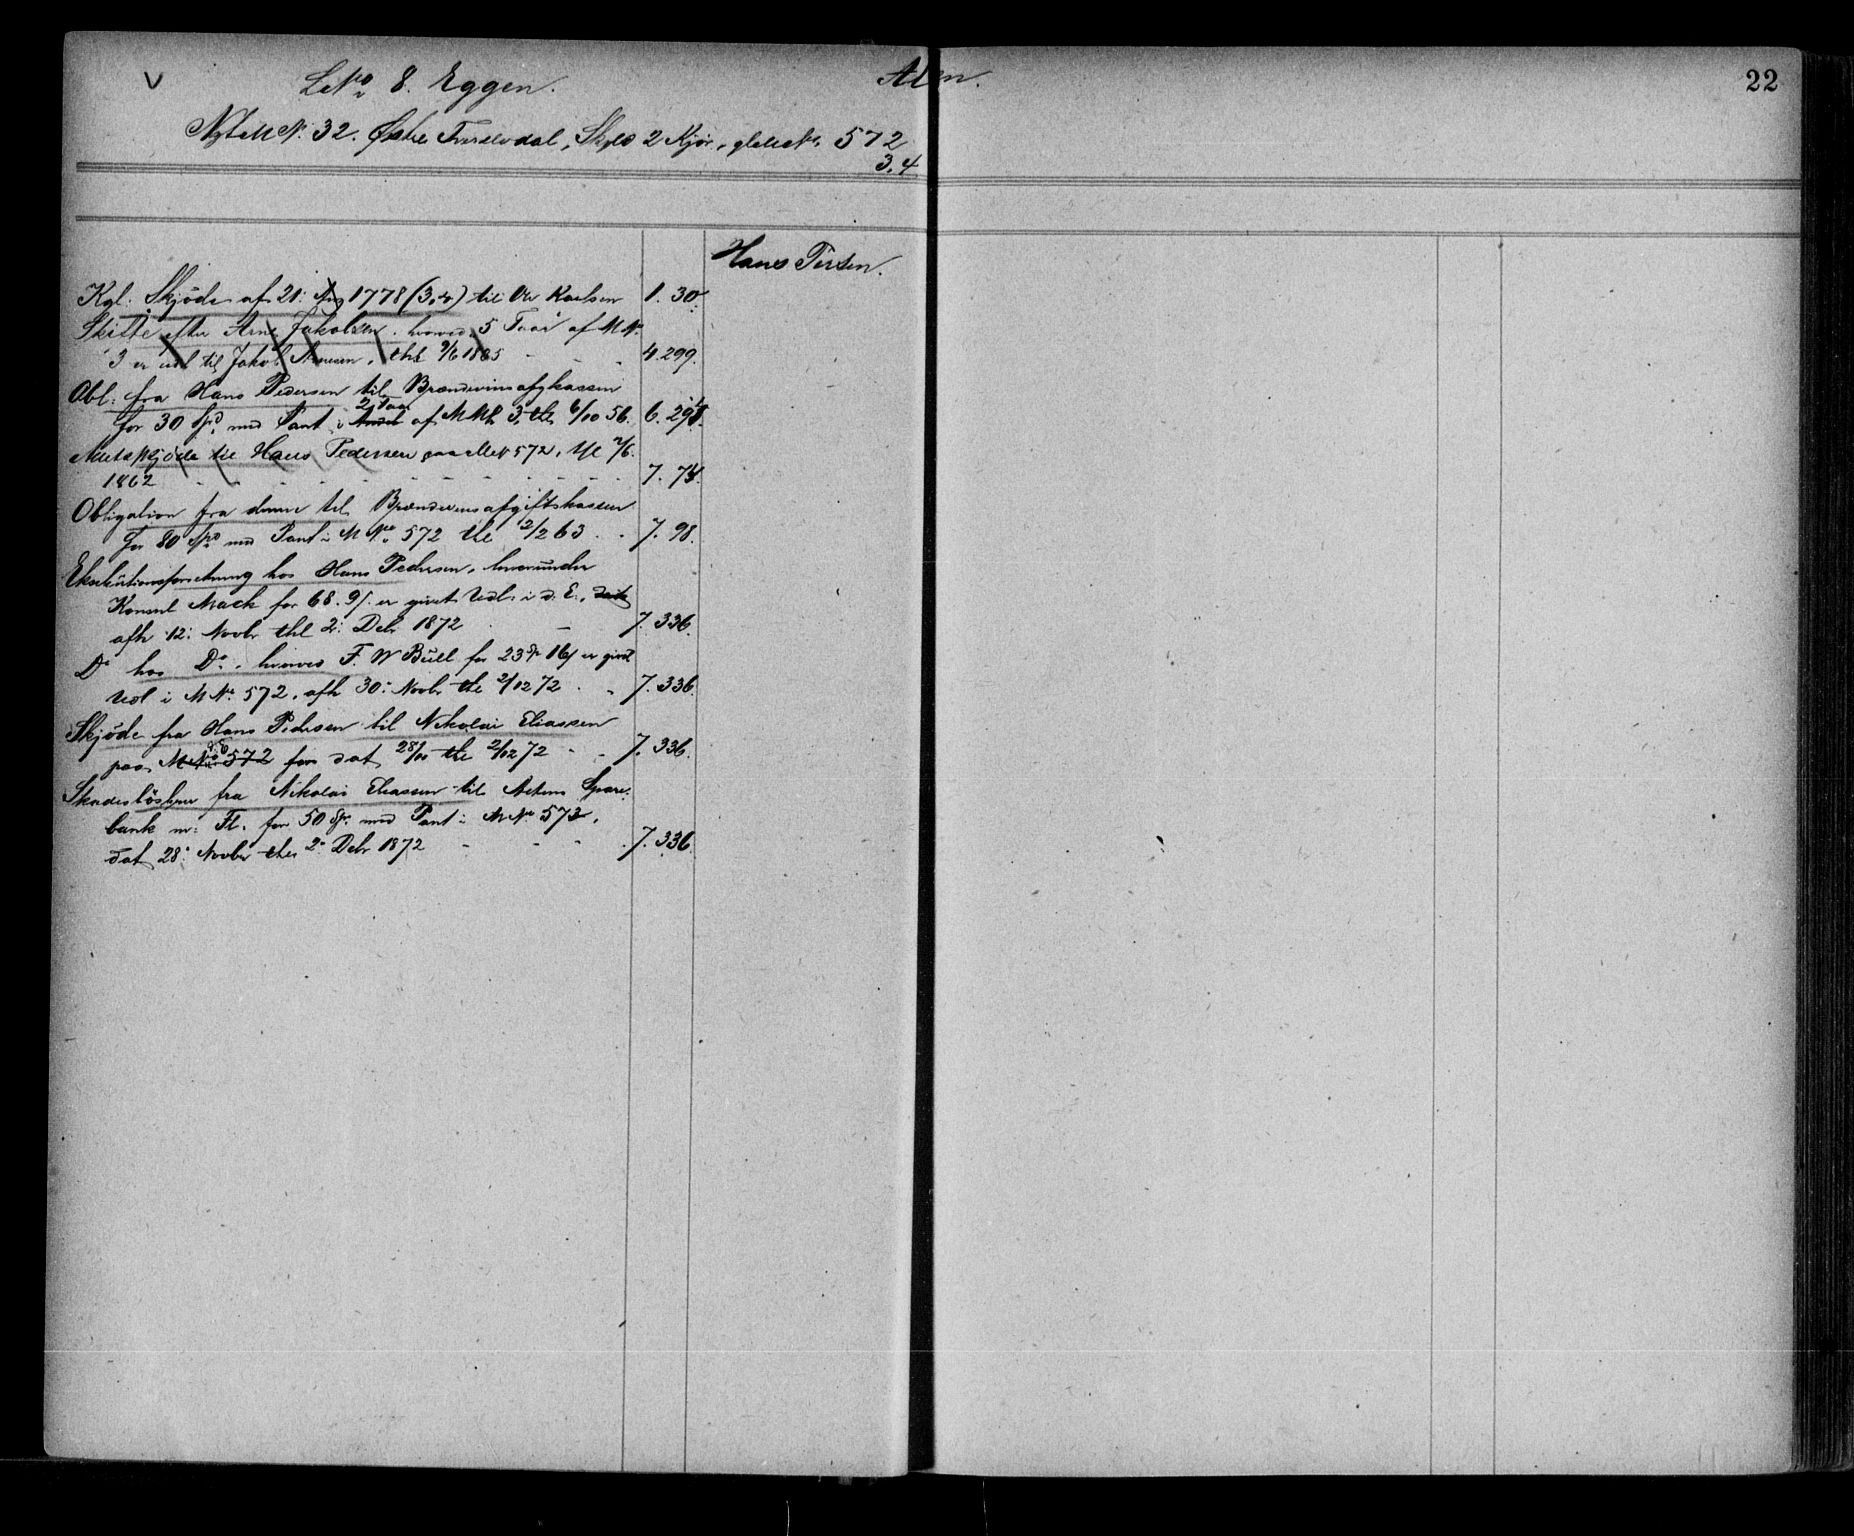 V LNo 8. Eggen. Alen. 22
Nyt M No. 32. Østre Tverelvdal, Skyld 2 Kjør, gl. M No 572
3,4
Hans Persen.
Kgl: Skjöde af 21: Aug 1778 (3,4) til Ole Karlsen 1. 30.
Skifte efter Arne Jakobsen, hvorved 5 Faar af M No
3 er udl til Jakob Arnesen, thl 9/6 1865 - - - 4. 299.
Obl: fra Hans Pedersen til Brændevinsafgkassen
2 Faar
for 30 Spd med Pant i Andel af M No 3, thl 6/10 56. 6. 291.
Auktskjöde til Hans Pedersen paa M No 572, thl 2/6.
1862 - - - - - - - - - 7. 74.
Obligation fra denne til Brændevinsafgiftskassen
for 80 Spd med Pant i M No 572 thl 2/2 63 . . 7. 98.
Eksekutionsforretning hos Hans Pedersen, hvorunder
Konsul Mack for 68. 9/. er givet Udl: i d. E.,
afh 12: Novbr thl 2: Debr 1872 - 7. 336.
Do hos Do, hvorved F. W Büll for 23 Spd 16/ er givet
Udl i M No. 572, afh 30: Novbr thl 2/12 72 . „ 7. 336.
Skjöde fra Hans Pedersen til Nikolai Eliassen
d. E
paa M No 572 for dat 28/10 thl 2/12 72 - . 7. 336.
Skadeslösbrev fra Nikolai Eliassen til Altens Spare-
bank m: Fl. for 50 Spd. med Pant i M No. 572,
dat 28: Novbr thl 2: Debr 1872 - - - . 7. 336.